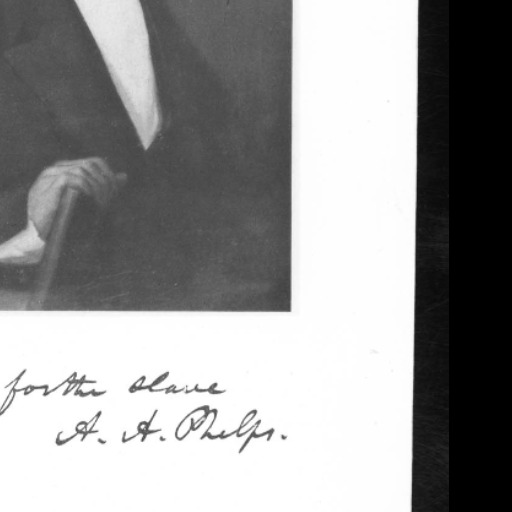 for the slave
A. A. Phelps.